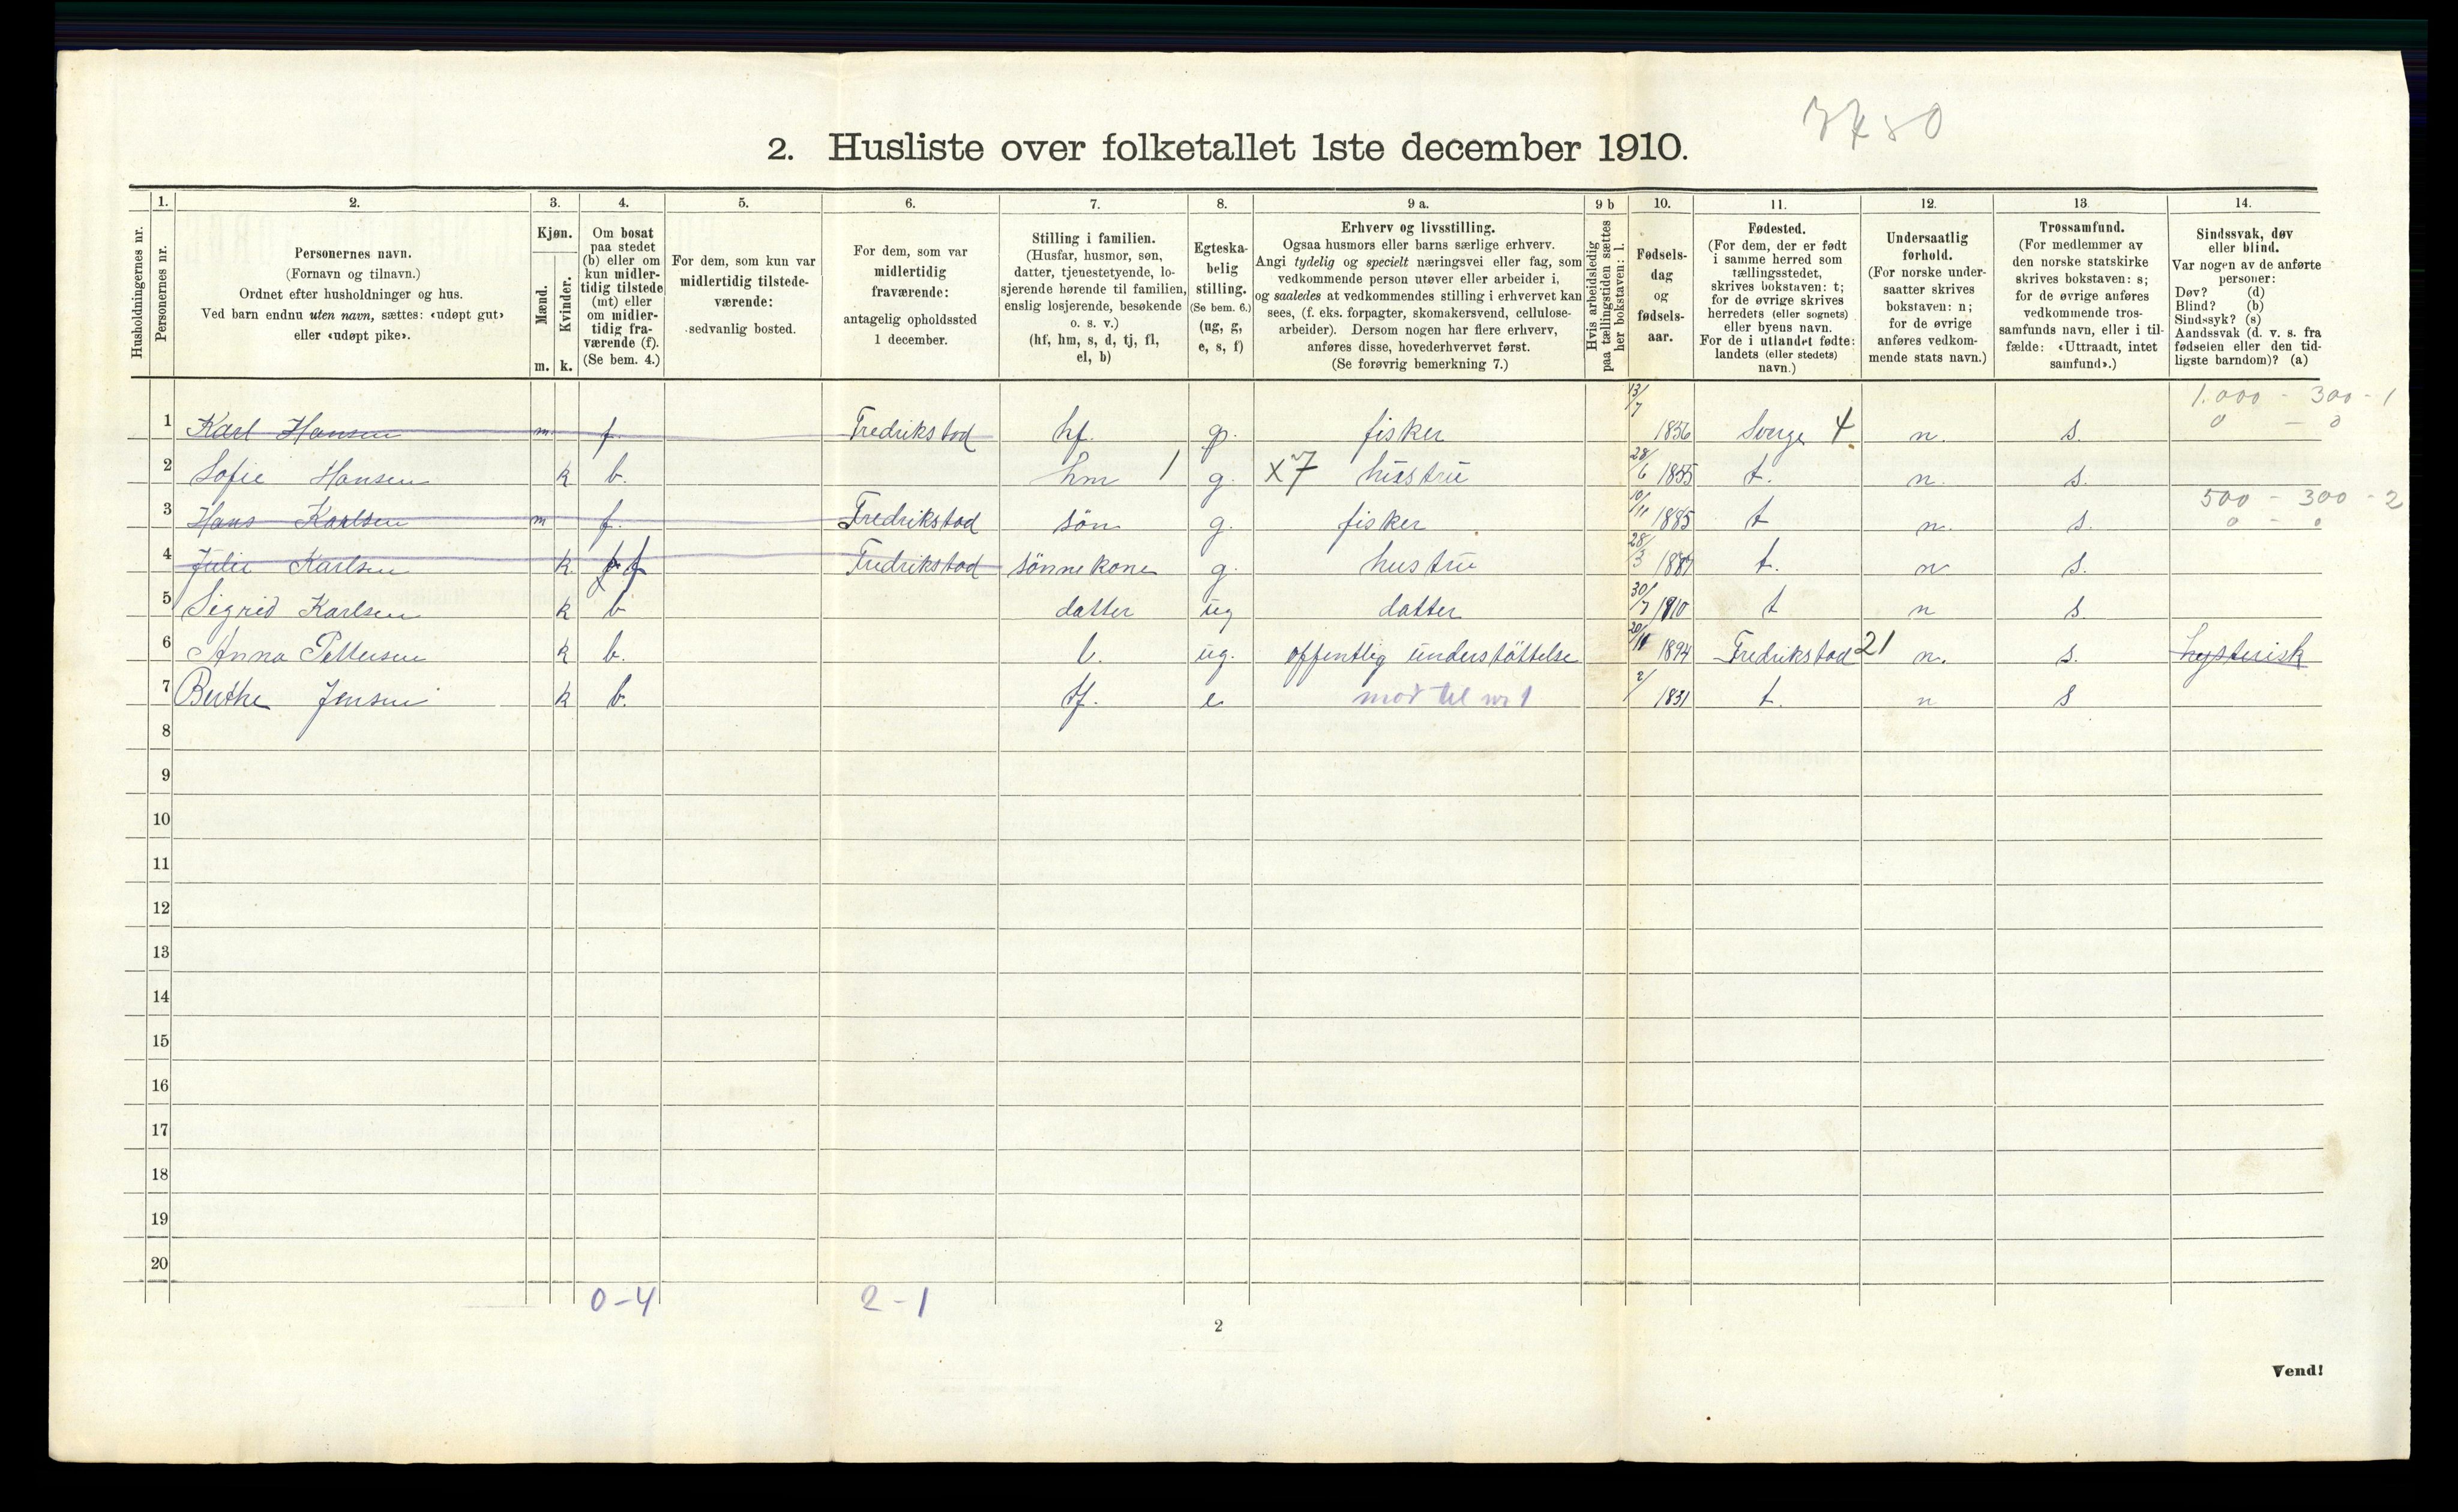 7480
2. Husliste over folketallet 1ste december 1910.
Husholdningernes nr.
1. Personernes nr.
2. Personernes navn.
(Fornavn og tilnavn.)
Ordnet efter husholdninger og hus.
Ved barn endnu uten navn, sættes: «udøpt gut»
eller «udøpt pike».
3. Kjøn.
Mænd. m.
Kvinder. k.
4. Om bosat
paa stedet
(b) eller om
kun midler-
tidig tilstede
(mt) eller
om midler-
tidig fra-
værende (f).
(Se bem. 4.)
5. For dem, som kun var
midlertidig tilstede-
værende:
sedvanlig bosted.
6. For dem, som var
midlertidig
fraværende:
antagelig opholdssted
1 december.
7. Stilling i familien.
(Husfar, husmor, søn,
datter, tjenestetyende, lo-
sjerende hørende til familien,
enslig losjerende, besøkende
o. s. v.)
(hf, hm, s, d, tj, fl,
el, b)
8. Egteska-
belig
stilling.
(Se bem. 6.)
(ug, g,
e, s, f)
9 a. Erhverv og livsstilling.
Ogsaa husmors eller barns særlige erhverv.
Angi tydelig og specielt næringsvei eller fag, som
vedkommende person utøver eller arbeider i,
og saaledes at vedkommendes stilling i erhvervet kan
sees, (f. eks. forpagter, skomakersvend, cellulose-
arbeider). Dersom nogen har flere erhverv,
anføres disse, hovederhvervet først.
(Se forøvrig bemerkning 7.)
9 b Hvis arbeidsledig
paa tællingstiden sættes
her bokstaven: l.
10. Fødsels-
dag
og
fødsels-
aar.
11. Fødested.
(For dem, der er født
i samme herred som
tællingsstedet,
skrives bokstaven: t;
for de øvrige skrives
herredets (eller sognets)
eller byens navn.
For de i utlandet fødte:
landets (eller stedets)
navn.)
12. Undersaatlig
forhold.
(For norske under-
saatter skrives
bokstaven: n;
for de øvrige
anføres vedkom-
mende stats navn.)
13. Trossamfund.
(For medlemmer av
den norske statskirke
skrives bokstaven: s;
for de øvrige anføres
vedkommende tros-
samfunds navn, eller i til-
fælde: «Uttraadt, intet
samfund».)
14. Sindssvak, døv
eller blind.
Var nogen av de anførte
personer:
Døv? (d)
Blind? (b)
Sindssyk? (s)
Aandssvak (d. v. s. fra
fødselen eller den tid-
ligste barndom)? (a)
1 Karl Hansen m f. Fredrikstad hf. g. fisker 13/7 1856 Sverge 4 n. s. 1.000 - 300 - 1
0 - 0
2 Sofie Hansen k b. hm 1 g. X 7 hustru 28/6 1855 t. n. s.
3 Hans Karlsen m f. Fredrikstad søn g. fisker 10/11 1885 t n. s. 500 - 300 - 2
0 - 0
4 Julie Karlsen k. f Fredrikstad sönnekone g. hustru 28/3 1887 t. n s.
5 Sigrid Karlsen k b datter ug datter 30/7 1910 t n s
6 Anna Pettersen k b. ug. offentlig understöttelse 1894 Fredrikstad 21 n. s. hysterisk
7 Berthe Jensen k b. e mor til nr 1 1831 t. n s
8
9
10
11
12
13
14
15
16
17
18
19
20
0 - 4 2 - 1
2
Vend!